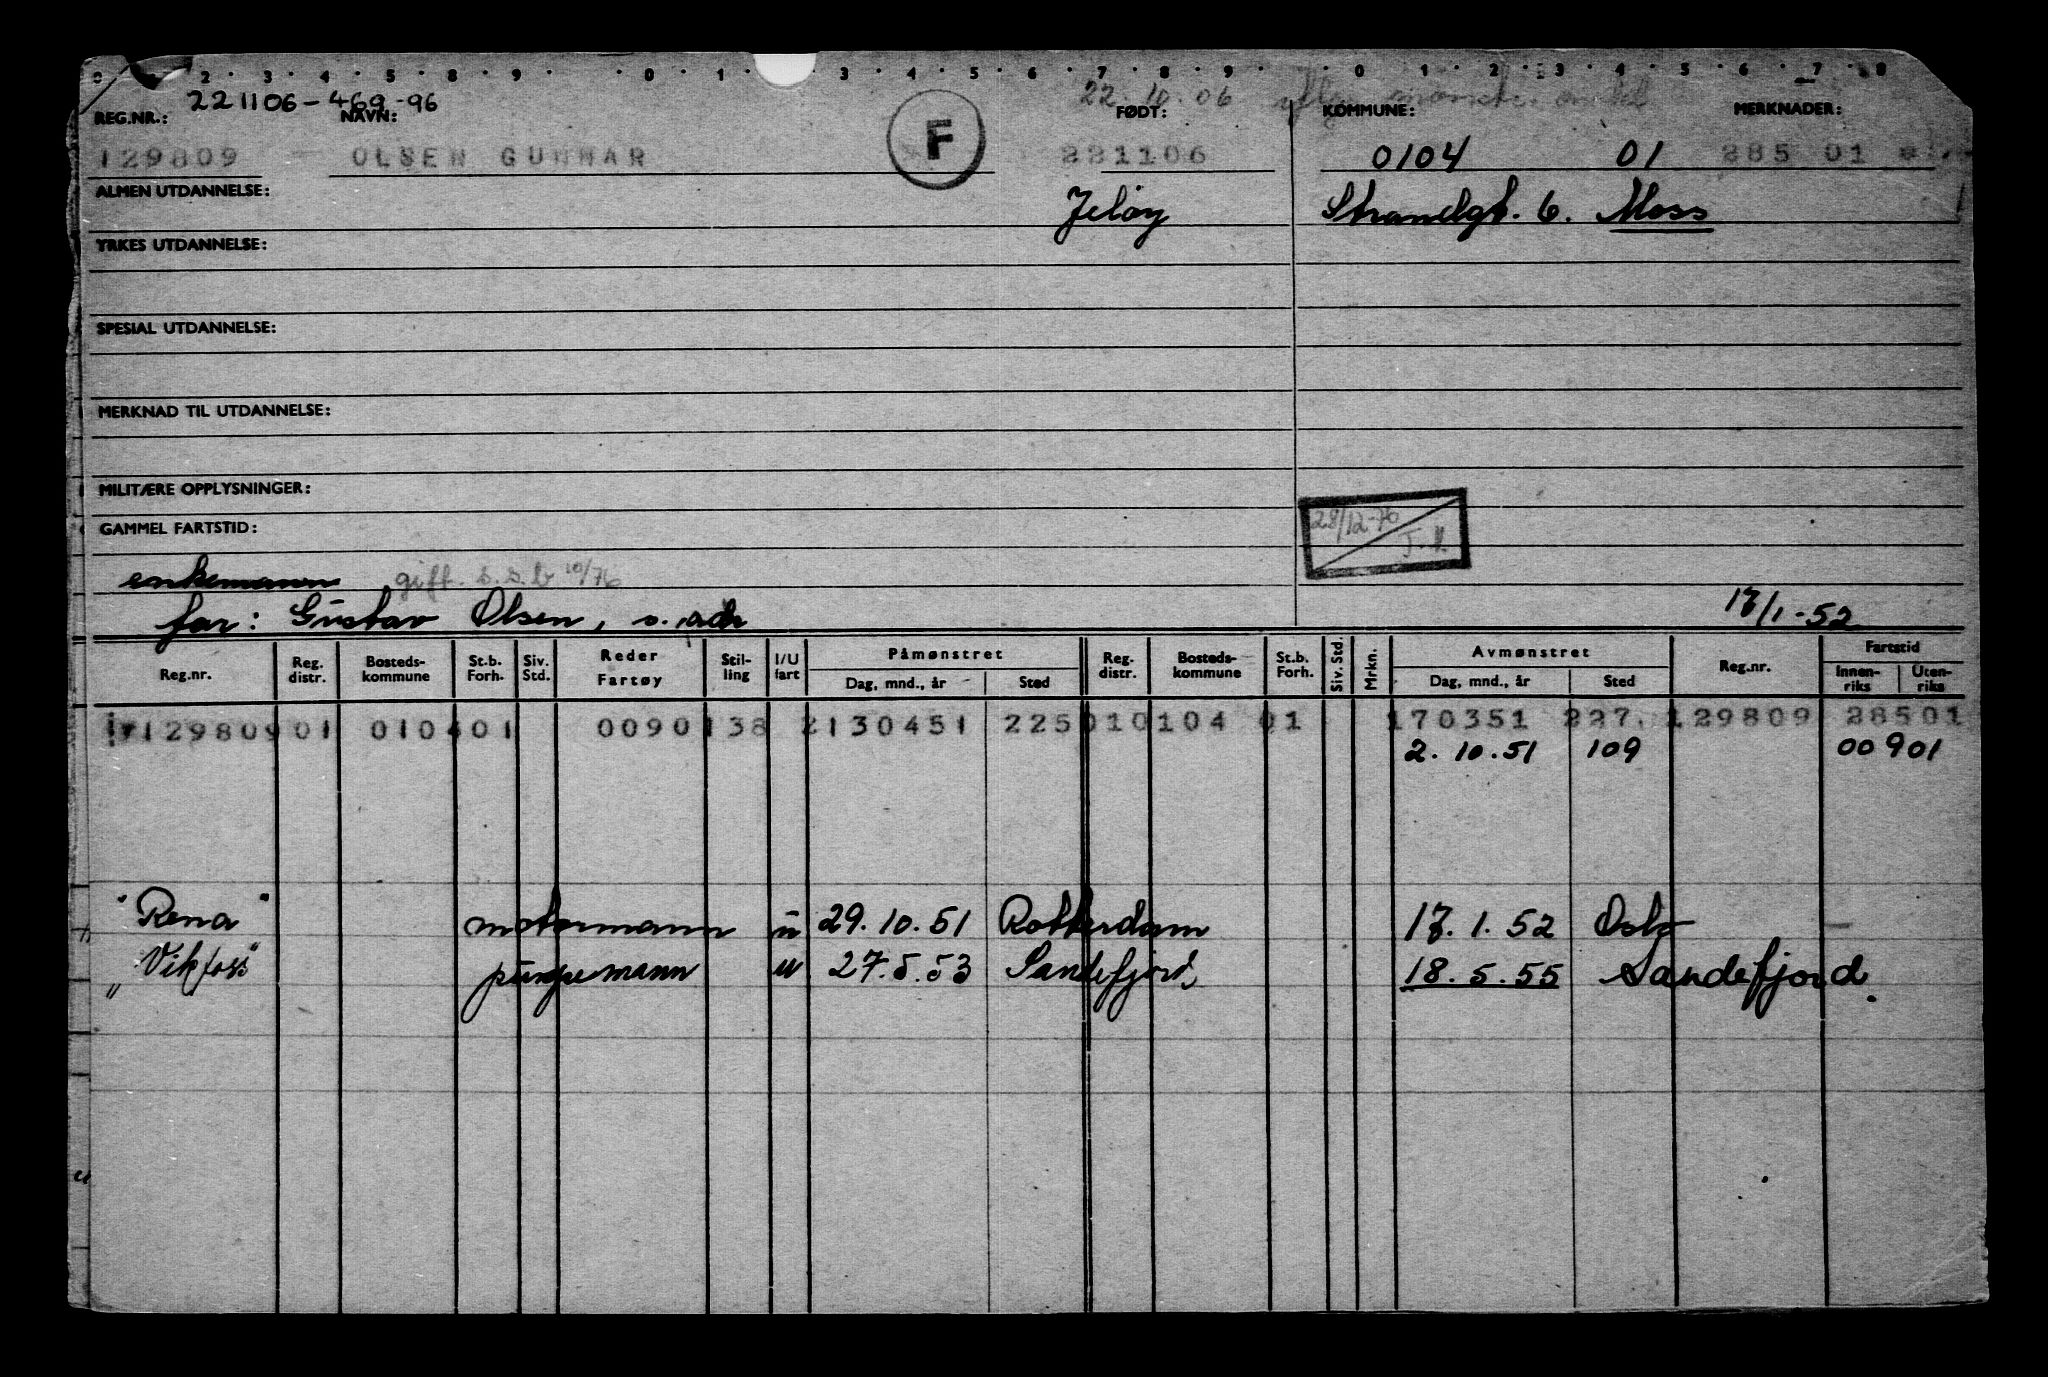 0 2 3 4 5 8 9 0 1 3 4 5 6 7 8 9 0 1 2 3 4 5 6 7 8
221106-469-96 22.10.06
REG.NR.: NAVN: F FØDT: KOMMUNE: MERKNADER:
129809 - OLSEN GUNNAR 221106 0104 01 285 01
ALMEN UTDANNELSE: Jeløy Strandgt. 6. Moss
YRKES UTDANNELSE:
SPESIAL UTDANNELSE:
MERKNAD TIL UTDANNELSE:
MILITÆRE OPPLYSNINGER:
28/12-76
GAMMEL FARTSTID:
enkemann gift. s.s.b 10/76
far: Gustav Olsen, s. adr 17/1-52
Reg.nr. Reg. distr. Bosteds-kommune St.b. Forh. Siv. Std. Reder Fartøy Stil-ling I/U fart Påmønstret Dag, mnd., år Sted Reg. distr. Bosteds-kommune St.b. Forh. Siv. Std. Mrkn. Avmønstret Dag, mnd., år Sted Reg.nr. Fartstid Innen-riks Uten-riks
129809 01 0104 01 0090 138 2 130451 225 01 0104 01 170351 227. 129809 28501
2.10.51 109 00901
"Rena" motormann u 29.10.51 Rotterdam 17.1.52 Oslo
"Vikfoss" pumpemann u 27.5.53 Sandefjord 18.5.55 Sandefjord.